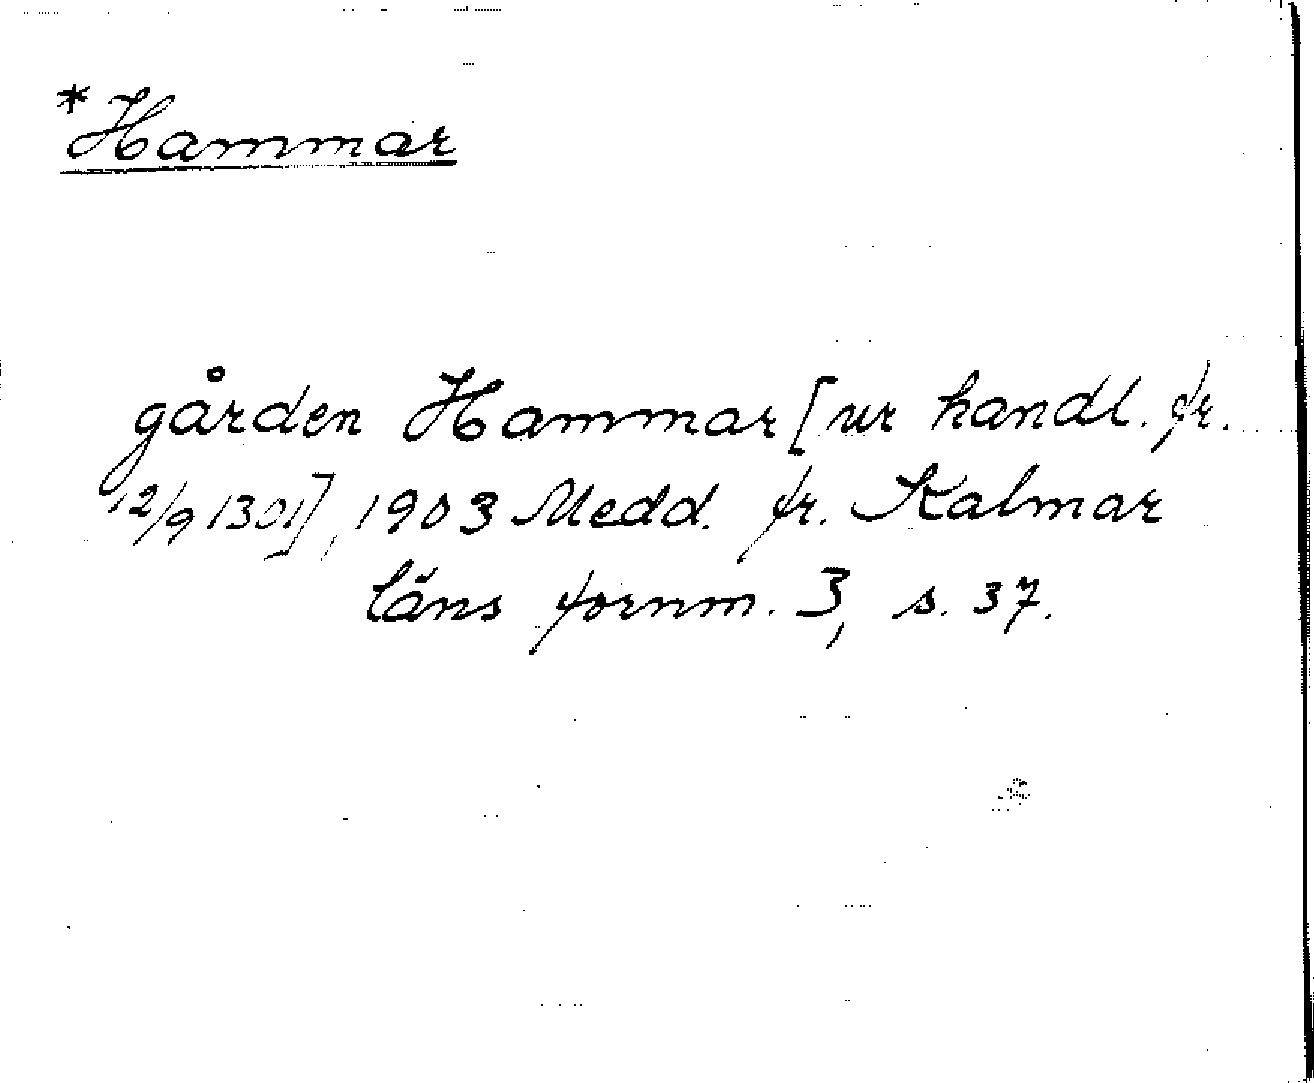 *Hammar
gården Hammar [ur handl. fr.
12/9 1301], 1903 Medd. fr. Kalmar
läns fornm. 3, s. 37.